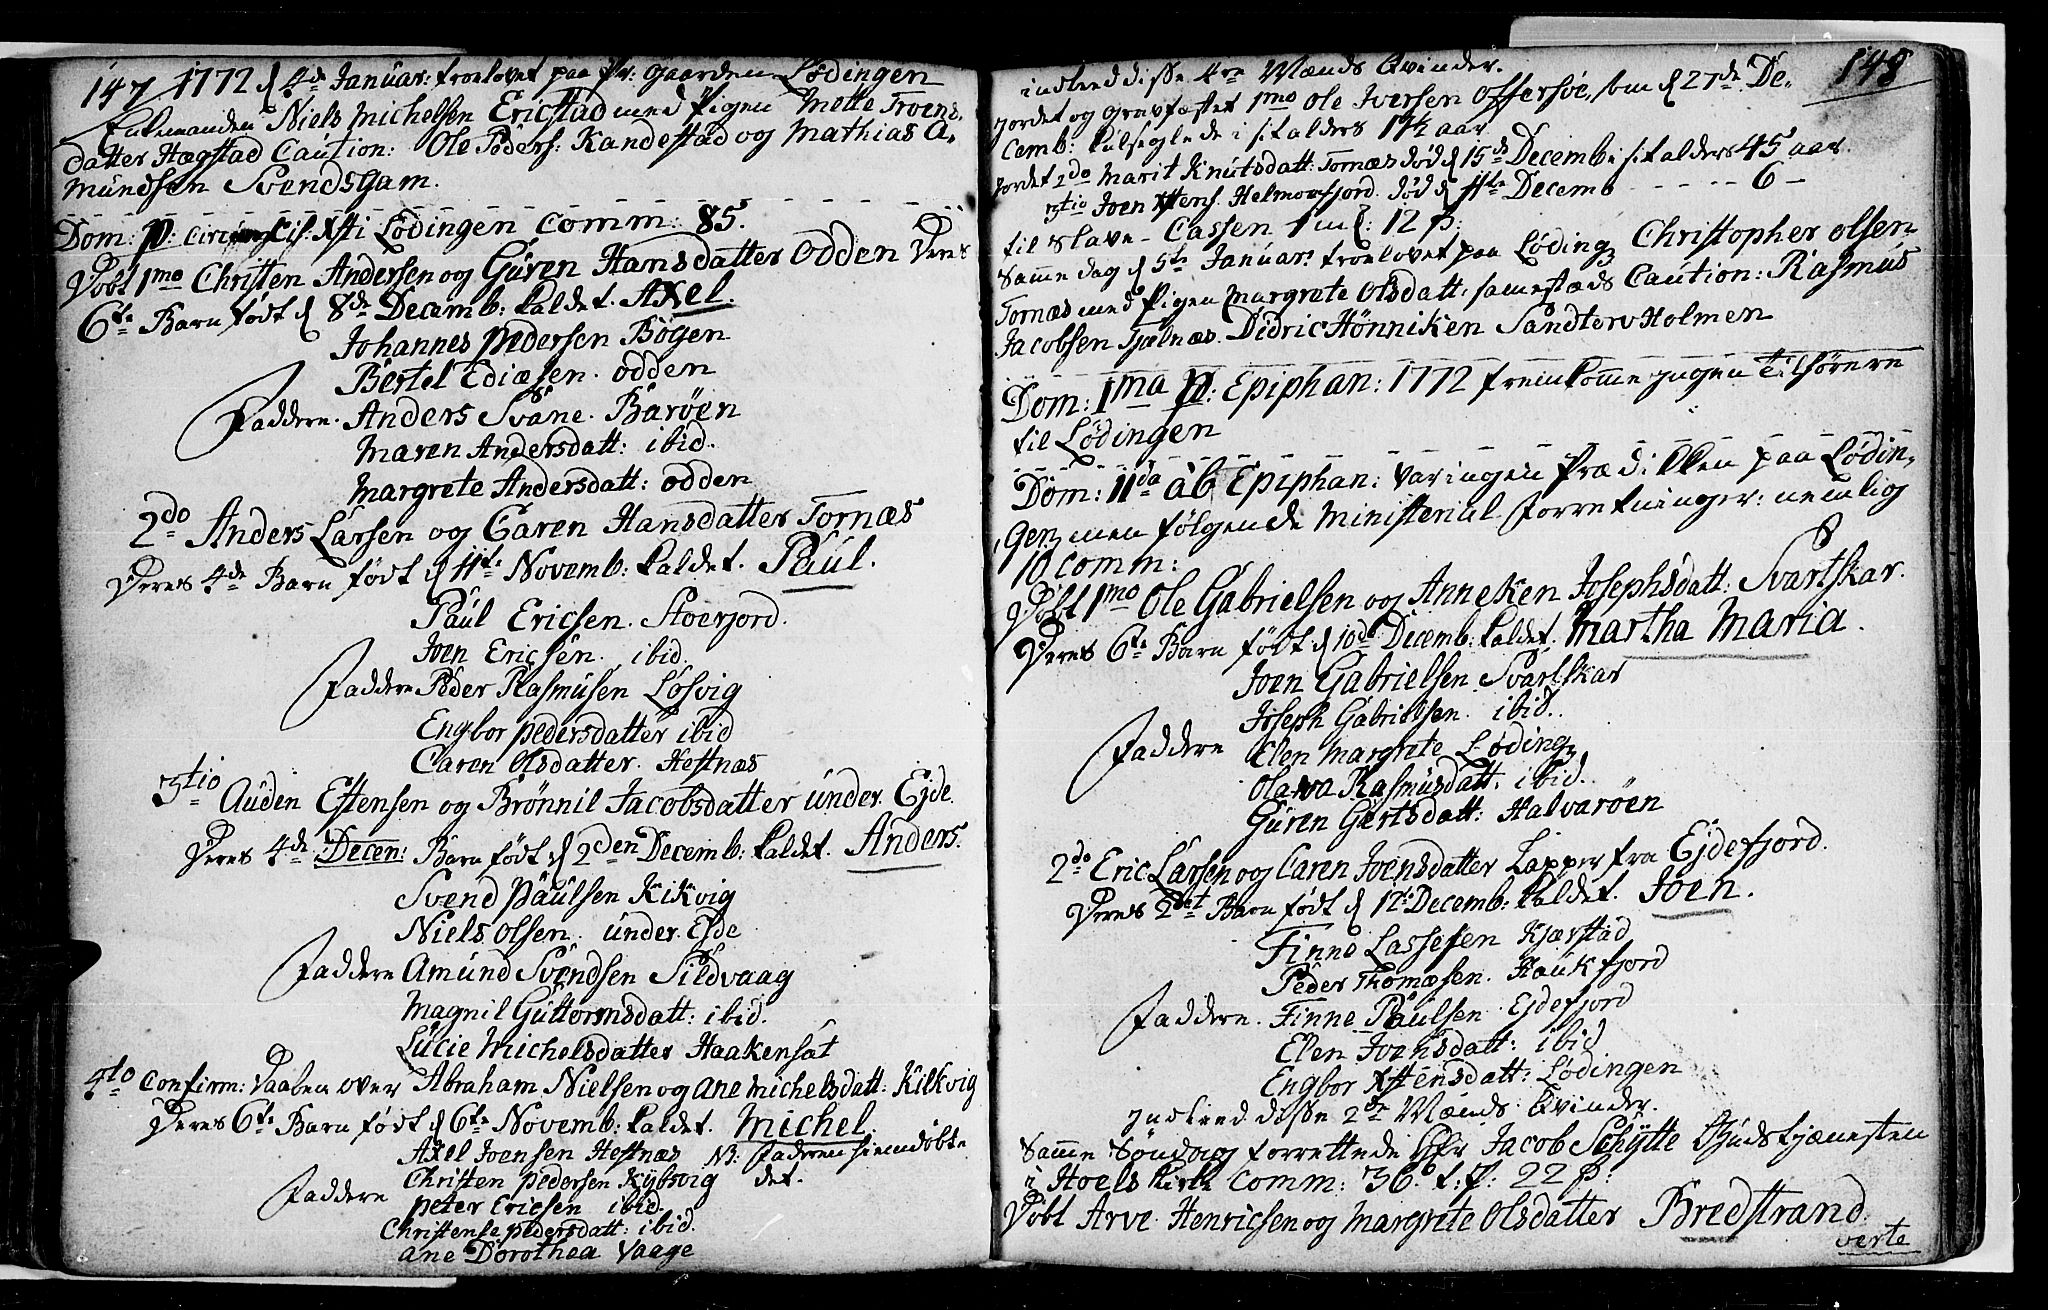 147 1772 d 4de Januar: troelovet paa Pr: gaarden Lødingen
Enkemanden Niels Michelsen Ericstad med Pigen Mette Troens
datter Hægstad Caution: Ole Peders: Kandestad og Mathias A,
mundsen Svendsgam.
Dom: p: circumcis: Xsti Lødingen comm: 85.
Døbt 1mo Christen Andersen og Guren Hansdatter Odden Deres
6te Barn født d 8de Decemb: kaldet. Axel.
Johannes Pedersen Bogen
Bertel Ediæsen. odden
Faddere. Anders Svane. Barøen
Maren Andersdatt: ibid.
Margrete Andersdatt: odden
2do Anders Larsen og Caren Hansdatter Tornæs
Deres 4de Barn født d 11te Novemb: kaldet. Paul.
Paul Ericsen. Stoerjord.
Joen Ericsen. ibid.
Faddere Peder Rasmusen Løsvig
Engbor pedersdatter ibid
Caren Olsdatter. Hestnæs
3tio Auden Estensen og Brønnil Jacobsdatter under Ejde.
Deres 4de Decen: Barn født d 2den Decemb: kaldet. Anders.
Svend Paulsen Kikvig
Niels Olsen. under Ejde
Faddere Amund Svendsen Sildvaag
Magnil Guttormsdatt: ibid.
Lucie Michelsdatter Haakensat
4to Confirm: Daaben over Abraham Nielsen og Ane Michelsdatt: Kilkvig
Deres 6te Barn født d 6te Novemb: kaldet. Michel.
Axel Joensen Hestnæs NB: Faderen hiemdøbte
Christen Pedersen Kybvig det.
Faddere Peter Ericsen ibid.
Christense pedersdatt: ibid.
Ane Dorothea Vaage
148
indleed disse 4re Mænds Qvinder.
Jordet og gravfæstet 1mo Ole Iversen Offersøe, som d 27de De,
cemb: i sit alders 14½ aar
Jordet 2do Marit Knutsdatt: Tornæs død d 15de Decemb: i sit alders 45 aar.
3tio Joen Xstens. Helmonfjord død d 11te Decemb - - - - - 6 -
til Slave-Cassen 1 m: 12 ß:
Samme dag d 5te Januar: troelovet paa Løding Christopher Olsen
Tornæs med Pigen Margrete Olsdatt: samestæds Caution: Rasmus
Jacobsen Tjælnæs. Didric Hønniken Sandtorv Holmen
Dom: 1ma p: Epiphan: 1772 fremkomme ingen Tilhørere
til Lødingen
Dom: 11da ab Epiphan: var ingen Prædikken paa Lødin,
gen men følgende Ministerial Forretninger: nemlig
10 comm:
Døbt 1mo Ole Gabrielsen og Anneken Josephsdatt: Svartskar.
Deres 6te Barn født d 10d: Decemb: kaldet. Martha Maria.
Joen Gabrielsen Svartskar
Joseph Gabrielsen. ibid.
Faddere Elen Margrete Løding
Olava Rasmusdatt: ibid.
Guren Gertsdatt: Halvarøen
2do Eric Larsen og Caren Joensdatter Lapper fra Ejdefjord.
Deres 2det Barn født d 17de Decemb: kaldet. Joen.
Finne Lassesen Kjærstad
Peder Thomæsen. Haukfjord
Faddere. Finne Paulsen Ejdefjord
Elen Joensdatt: ibid
Engbor Xstensdatt: Lødingen
Indleed disse 2de Mænds Qvinder.
Samme Søndag forrettede Hr Jacob Schytte Gudstjænesten
i Hoels Kirke Comm: 36. t: f: 22 ß:
Døbt Arve Henricsen og Margrete Olsdatter Bredstrand.
verte